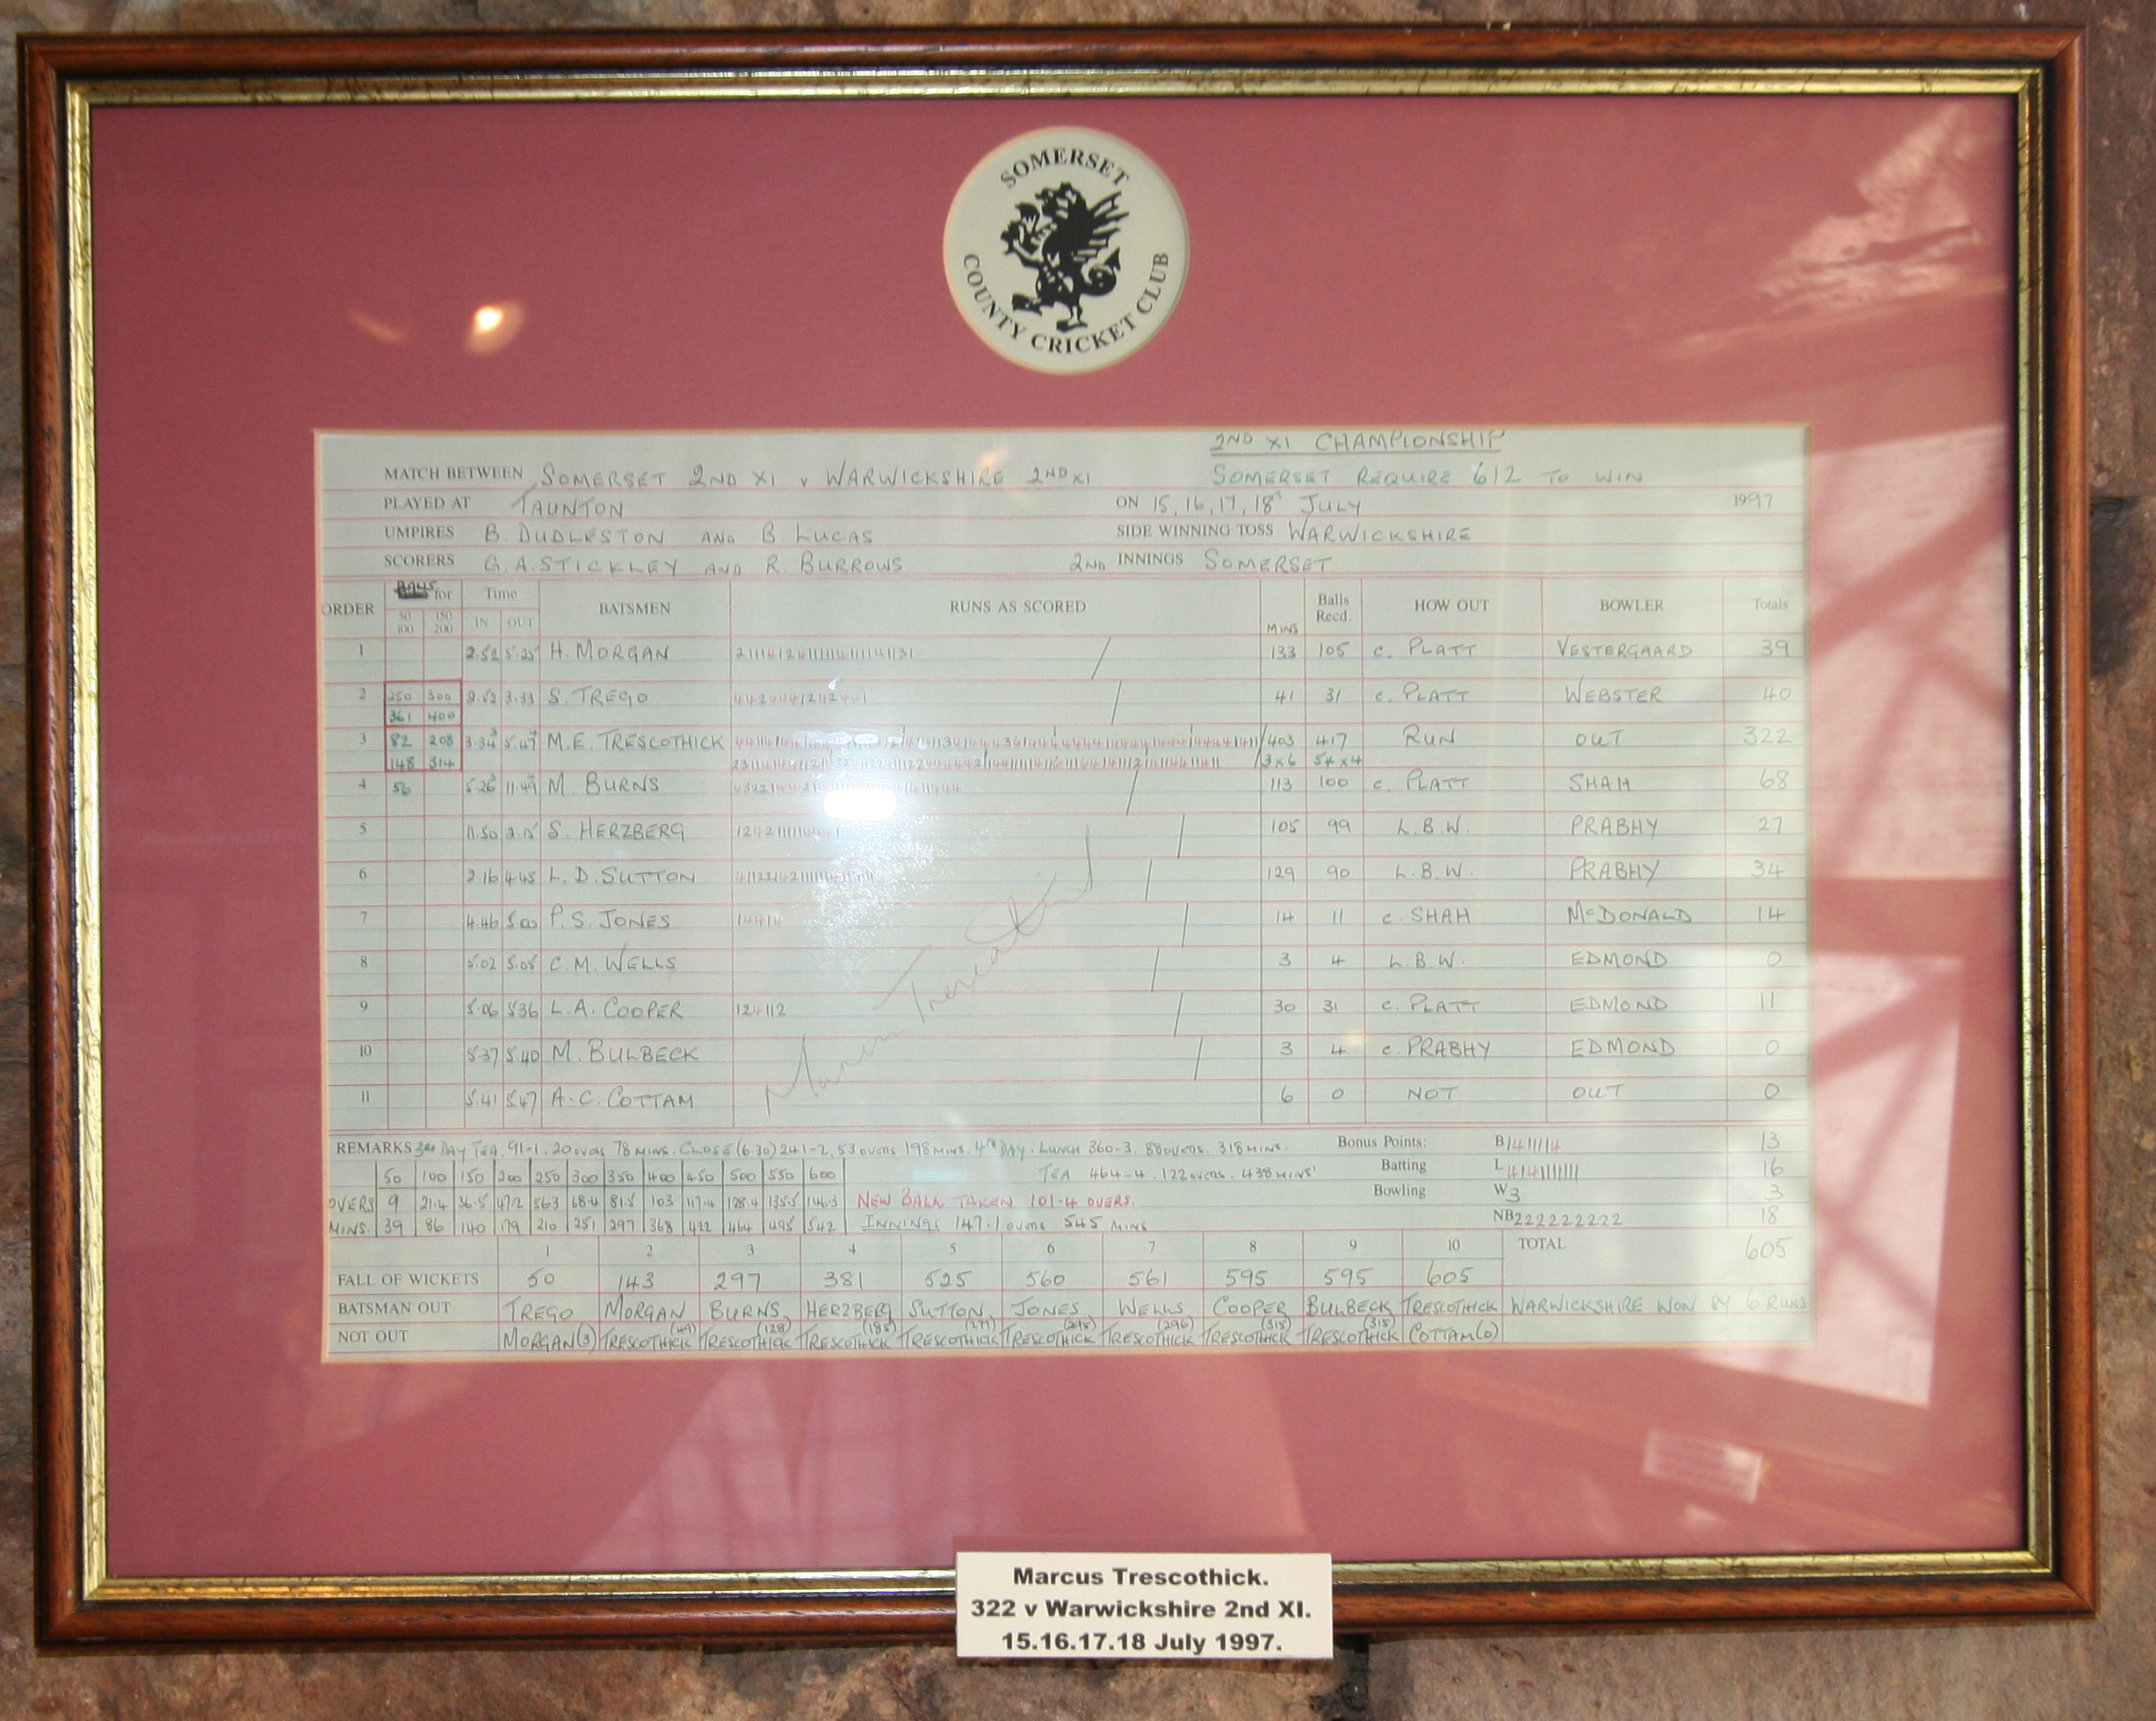 SOMERSET
COUNTY CRICKET CLUB
2ND XI CHAMPIONSHIP
MATCH BETWEEN SOMERSET 2ND XI v WARWICKSHIRE 2ND XI SOMERSET REQUIRE 612 TO WIN
PLAYED AT TAUNTON ON 15, 16, 17, 18 JULY 1997
UMPIRES B. DUDLESTON AND B. LUCAS SIDE WINNING TOSS WARWICKSHIRE
SCORERS G.A. STICKLEY AND R. BURROWS 2ND INNINGS SOMERSET
ORDER BALLS for Time BATSMEN RUNS AS SCORED MINS Balls Recd. HOW OUT BOWLER Totals
50 100 150 200 IN OUT
1 2.52 5.25 H. MORGAN 133 105 c. PLATT VESTERGAARD 39
2 250 300 2.52 3.33 S. TREGO 41 31 c. PLATT WEBSTER 40
361 400
3 82 208 3.34 5.47 M.E. TRESCOTHICK 403 417 RUN OUT 322
148 314 3x6 54x4
4 56 5.26 11.49 M. BURNS 113 100 c. PLATT SHAH 68
5 11.50 2.15 S. HERZBERG 105 99 L.B.W. PRABHY 27
6 2.16 4.45 L.D. SUTTON 129 90 L.B.W. PRABHY 34
7 4.46 5.00 P.S. JONES 14414 14 11 c. SHAH McDONALD 14
8 5.02 5.05 C.M. WELLS 3 4 L.B.W. EDMOND 0
9 5.06 5.36 L.A. COOPER 124112 30 31 c. PLATT EDMOND 11
10 5.37 5.40 M. BULBECK 3 4 c. PRABHY EDMOND 0
11 5.41 5.47 A.C. COTTAM 6 0 NOT OUT 0
Marcus Trescothick
REMARKS 3RD DAY TEA. 91-1. 20 OVERS 78 MINS. CLOSE (6.30) 241-2, 53 OVERS 198 MINS. 4TH DAY. LUNCH 360-3. 88 OVERS. 318 MINS. Bonus Points: B 13
TEA 464-4. 122 OVERS. 438 MINS Batting L 16
50 100 150 200 250 300 350 400 450 500 550 600
OVERS 9 21.4 36.5 47.2 56.3 68.4 81.5 103 117.4 128.4 135.5 146.3 NEW BALL TAKEN 101.4 OVERS. Bowling W3 3
MINS. 39 86 140 179 210 251 297 368 422 464 495 542 INNINGS 147.1 OVERS 545 MINS NB222222222 18
1 2 3 4 5 6 7 8 9 10 TOTAL 605
FALL OF WICKETS 50 143 297 381 525 560 561 595 595 605
BATSMAN OUT TREGO MORGAN BURNS HERZBERG SUTTON JONES WELLS COOPER BULBECK TRESCOTHICK WARWICKSHIRE WON BY 6 RUNS
NOT OUT MORGAN(3) TRESCOTHICK (49) TRESCOTHICK (128) TRESCOTHICK (185) TRESCOTHICK (271) TRESCOTHICK (295) TRESCOTHICK (296) TRESCOTHICK (315) TRESCOTHICK (315) COTTAM(0)
Marcus Trescothick.
322 v Warwickshire 2nd XI.
15.16.17.18 July 1997.